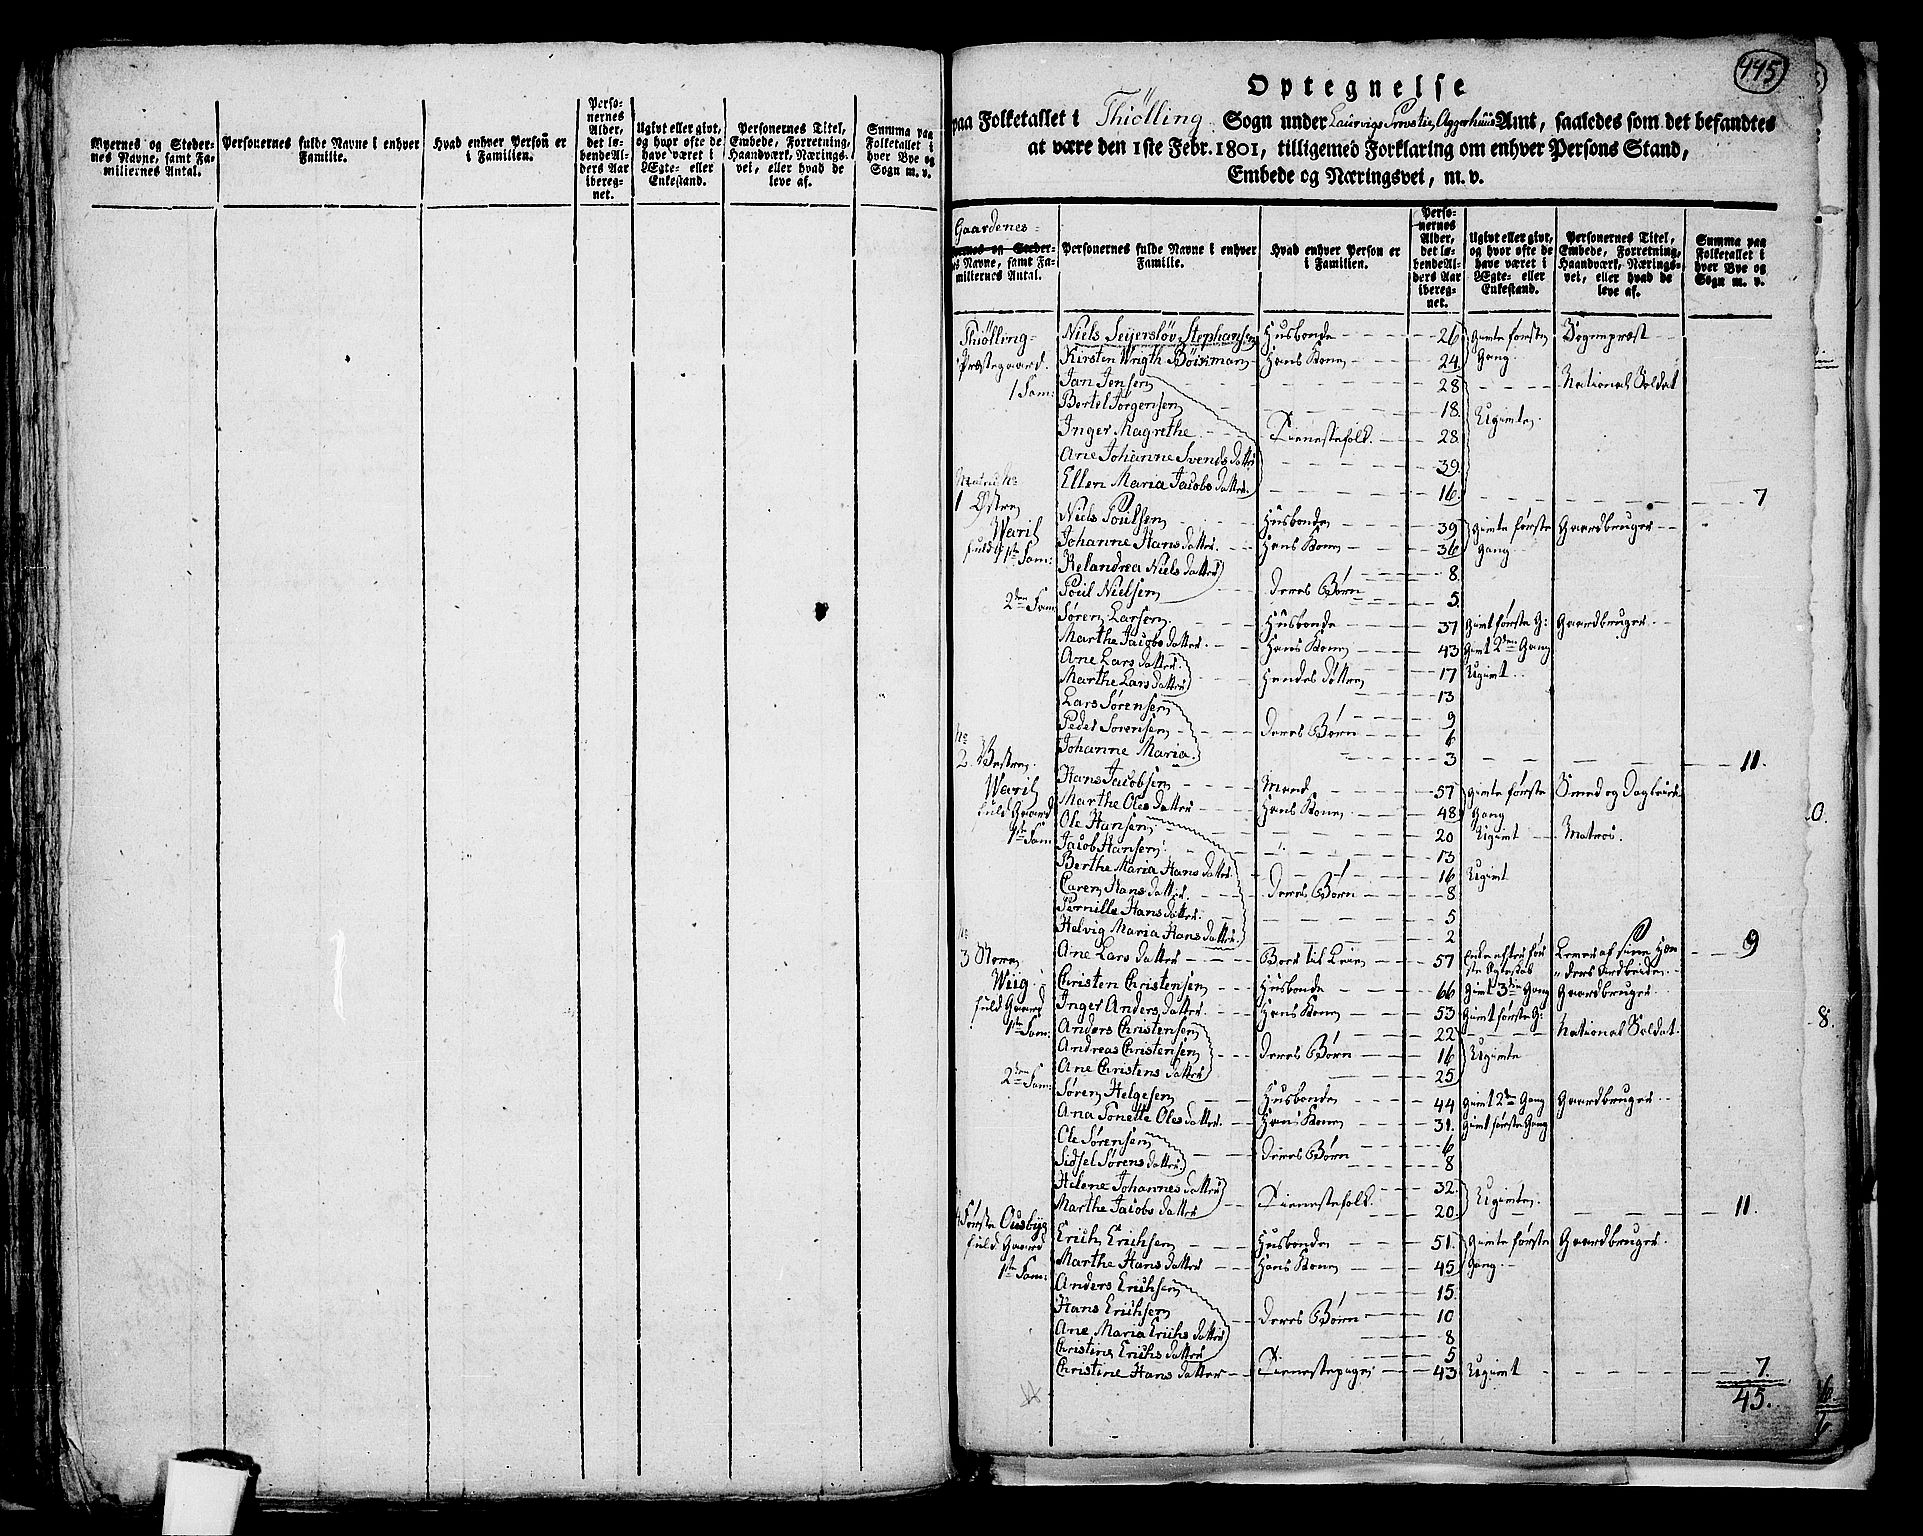 Byernes og Steder-
nes Navne, samt Fa-
miliernes Antal.
Personernes fulde Navne i enhver
Familie.
Hvad enhver Person er
i Familien.
Perso-
nernes
Alder,
det lø-
bende Al-
ders Aar
iberegnet.
Ugivt eller givt,
og hvor ofte de
have været i
Ægte- eller
Enkestand.
Personernes Titel,
Embede, Forretning,
Haandværk, Nærings-
vei, eller hvad de
leve af.
Summa paa
Folketallet i
hver Bye og
Sogn m. v.
445
Optegnelse
paa Folketallet i Thiølling Sogn under Laurvigs Provstie, Aggerhuus Amt, saaledes som det befandtes
at være den 1ste Febr. 1801, tilligemed Forklaring om enhver Persons Stand,
Embede og Næringsvei, m. v.
Gaardenes
Navne, samt Fa-
miliernes Antal.
Personernes fulde Navne i enhver
Familie.
Hvad enhver Person er
i Familien.
Perso-
nernes
Alder,
det lø-
bende Al-
ders Aar
iberegnet.
Ugivt eller givt,
og hvor ofte de
have været i
Ægte- eller
Enkestand.
Personernes Titel,
Embede, Forretning,
Haandværk, Nærings-
vei, eller hvad de
leve af.
Summa paa
Folketallet i
hver Bye og
Sogn m. v.
Thiølling Niels Seyersløv Stephansen Husbonde 26 Givte første Sognepræst
Præstegaard. Kirsten Wrigth Hans Kone 24 Gang
1 Fam: Jan Jensen 28 National Soldat
Bertel Jørgensen 18 Ugivte
Inger Magrethe Tienestefolk 28
Ane Johanne Svends datter 39
Ellen Maria Jacobs datter 16 7
1 Østre Niels Poulsen Husbonde 39 Givte første Gaardbruger
Johanne Hans datter Hans Kone 36 Gang
1te Fam: Relandrea Niels datter 8
Poul Nielsen Deres Børn 5
2den Fam Søren Larsen Husbonde 37 Givt første G: Gaardbruger
Marthe Jacobs datter Hans Kone 43 Givt 2den Gang
Ane Lars datter 17 Ugivt
Marthe Lars datter Hendes døttre 13
Lars Sørensen 9
No Peder Sørensen Deres Børn 6
2. Vestre Johanne Maria 3 11.
Hans Jacobsen Mand 57 Givte første Smed og
fuld Gaard Marthe Oles datter Hans Kone 48 Gang
1te Fam Ole Hansen 20 Ugivt Matros
Jacob Hansen 13
Berthe Maria Hans datter 16 Ugivt
Caren Hans datter Deres Børn 8
Pernille Hans datter 5
No Helvig Maria Hans datter 2
3 Store Ane Lars datter 57 Lever af sine Hæn- 9
Wiig Christen Christensen Husbonde 66 Givt 3die Gang Gaardbruger
fuld Gaard Inger Anders datter Hans Kone 53 Givt første G:
1te Fam: Anders Christensen 22 National Soldat
Andreas Christensen Deres Børn 16 Ugivte
Ane Christens datter 25
2den Fam: Søren Helgesen Husbonde 44 Givt 2den Gang Gaardbruger
Ana Tonette Oles datter Hans Kone 31. Givt første Gang
Ole Sørensen 6
Sidsel Sørens datter Deres Børn 8
Helene Johannes datter 32
Marthe Jacobs datter Tienestefolk 20 Ugivte 11.
4 Første Erich Erichsen Husbonde 51. Givte første Gaardbruger
fuld Gaard Marthe Hans datter Hans Kone 45 Gang
1te Fam: Anders Erichsen 15.
Hans Erichsen Deres Børn 10
Ane Maria Erichs datter 8
Christine Erichs datter 5
Christine Hans datter Tienestepige 43 Ugivt 7.
45.